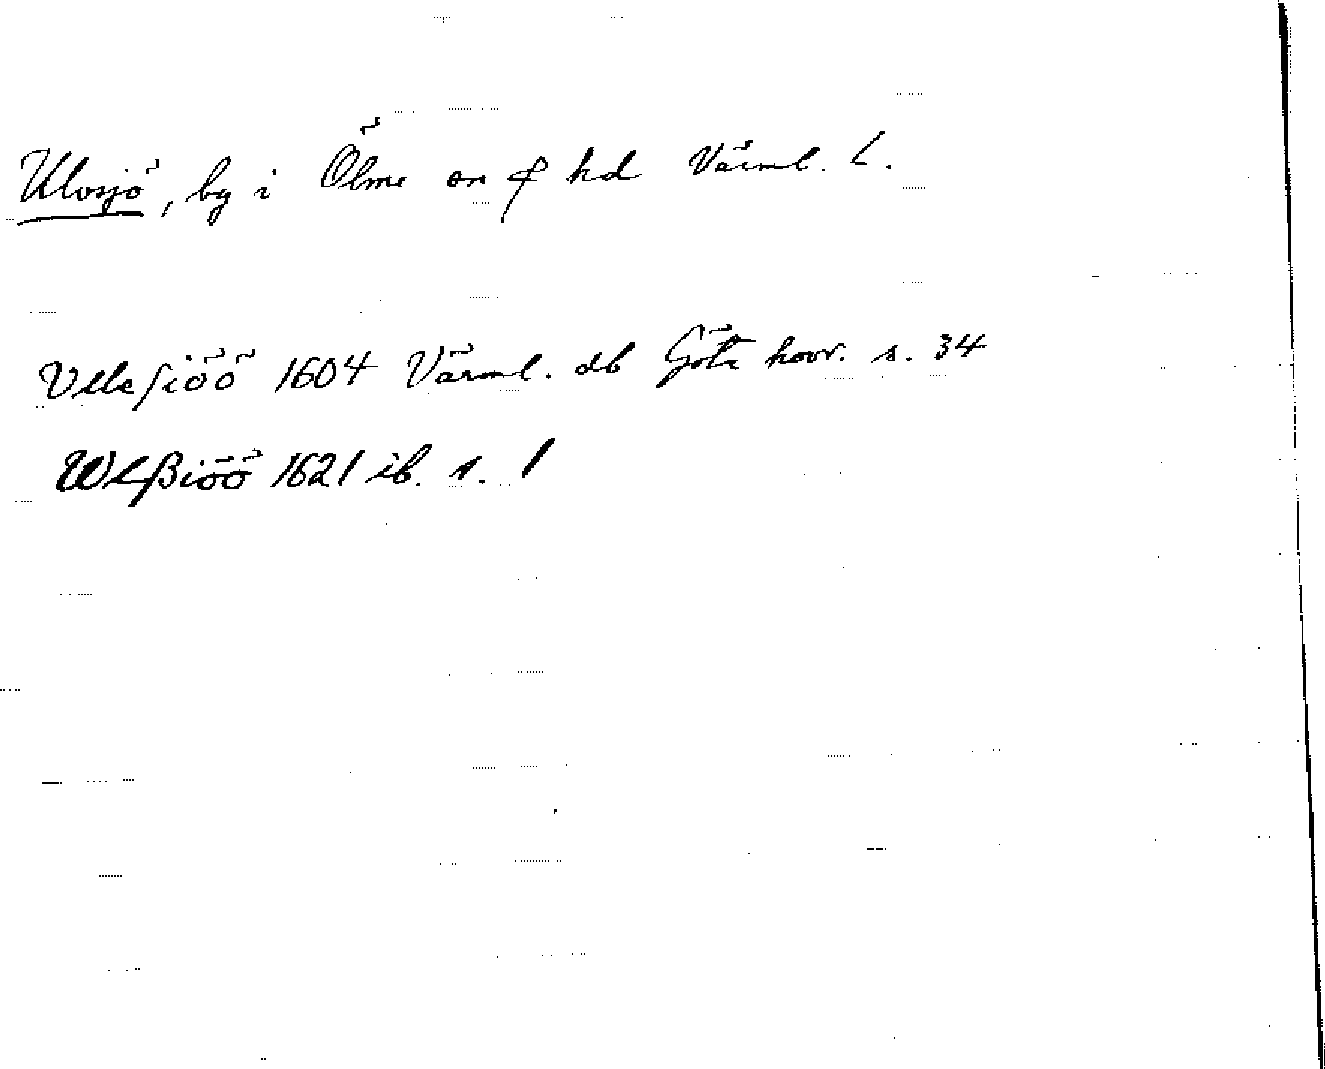 Ulvsjö, by i Ölme sn o hd Värml. L.
Vlleſiöö 1604 Värml. db Göta hovr. s. 34
Wlßiöö 1621 ib. s. 1